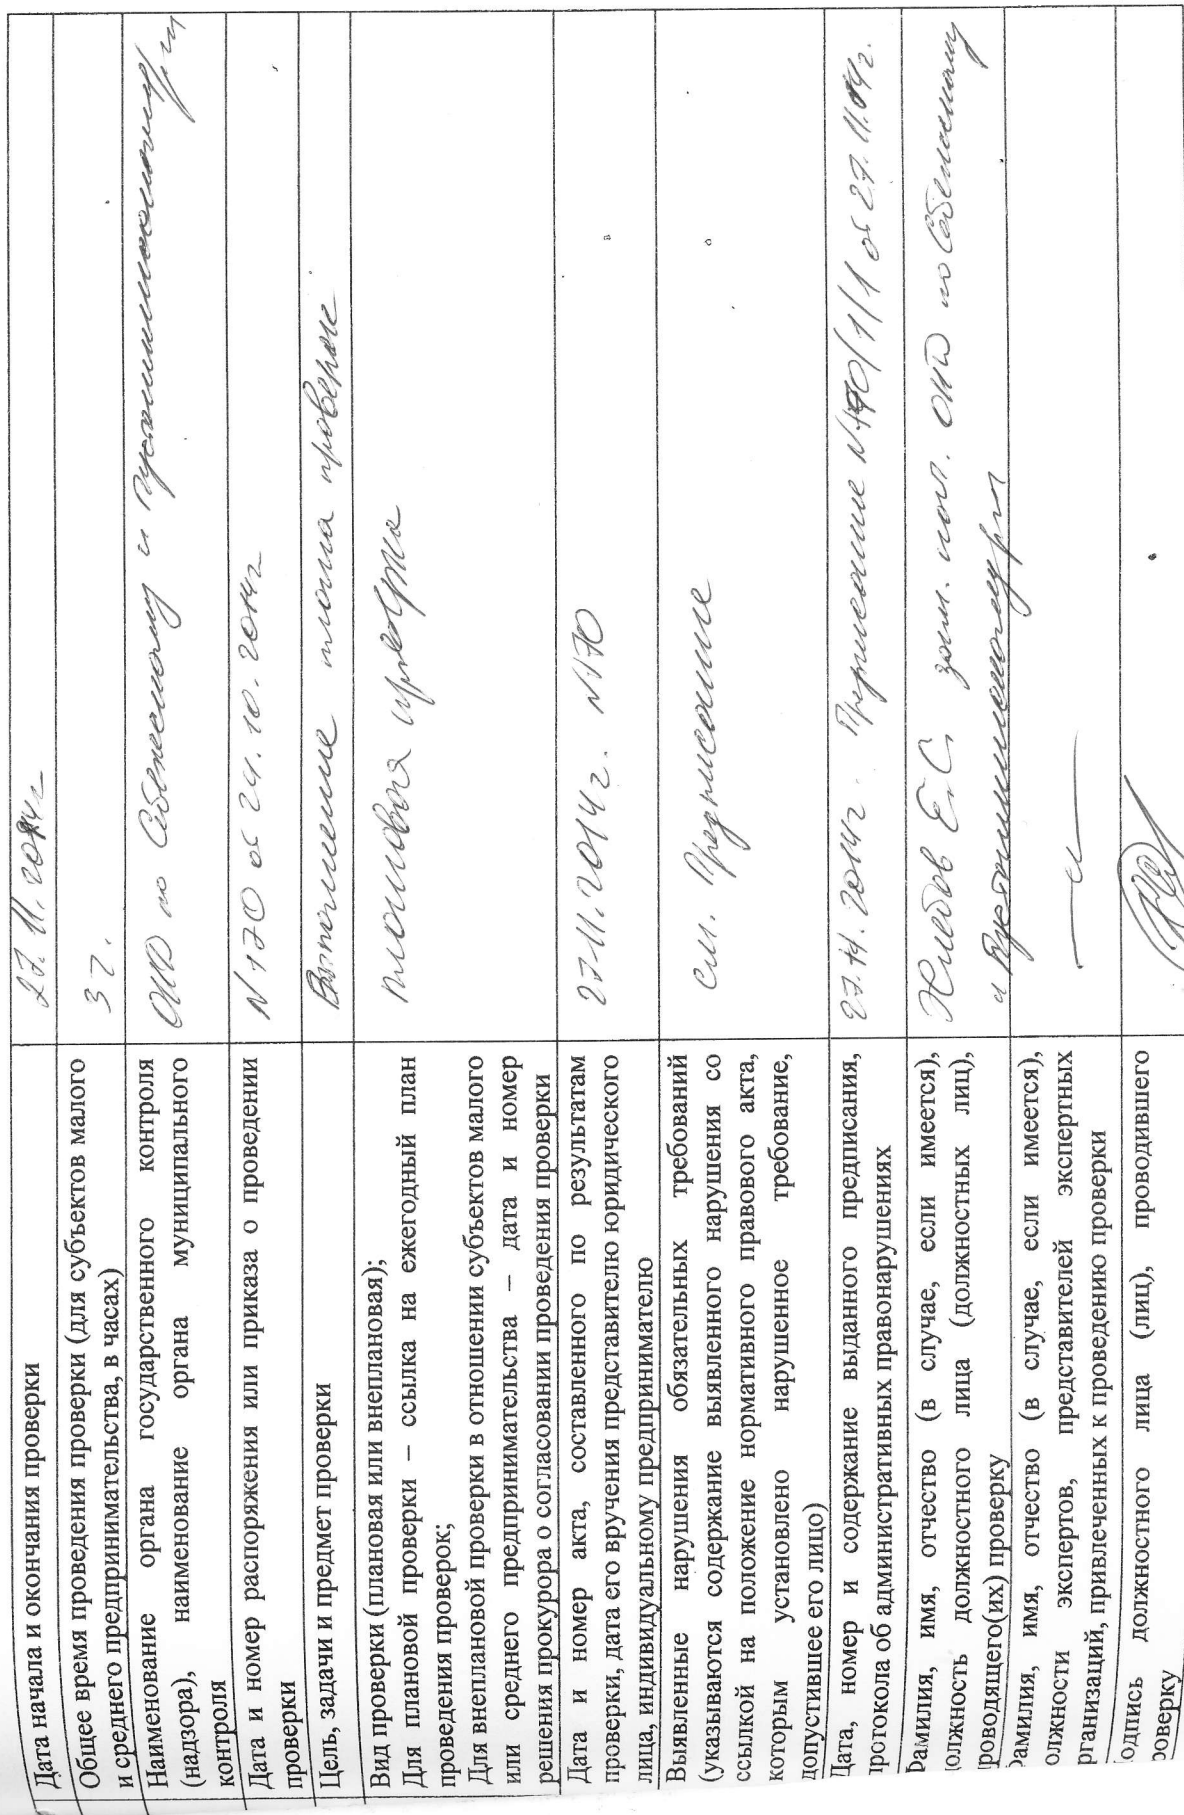 Дата начала и окончания проверки
27.11.2014г
Общее время проведения проверки (для субъектов малого
и среднего предпринимательства, в часах)
3 г.
Наименование органа государственного контроля
(надзора), наименование органа муниципального
контроля
ОНД по Себежскому и Пустошкинскому
Дата и номер распоряжения или приказа о проведении
проверки
N 170 от 24.10.2014г
Цель, задачи и предмет проверки
Выполнение плана проверок
Вид проверки (плановая или внеплановая);
Для плановой проверки – ссылка на ежегодный план
проведения проверок;
Для внеплановой проверки в отношении субъектов малого
или среднего предпринимательства – дата и номер
решения прокурора о согласовании проведения проверки
плановая проверка
Дата и номер акта, составленного по результатам
проверки, дата его вручения представителю юридического
лица, индивидуальному предпринимателю
27.11.2014г. N170
Выявленные нарушения обязательных требований
(указываются содержание выявленного нарушения со
ссылкой на положение нормативного правового акта,
которым установлено нарушенное требование,
допустившее его лицо)
см. Предписание
Дата, номер и содержание выданного предписания,
протокола об административных правонарушениях
27.11.2014г Предписание N170/1/1 от 27.11.14г.
Фамилия, имя, отчество (в случае, если имеется),
должность должностного лица (должностных лиц),
проводящего(их) проверку
Е.С. зам. нач. ОНД по Себежскому
и Пустошкинскому
Фамилия, имя, отчество (в случае, если имеется),
олжности экспертов, представителей экспертных
рганизаций, привлеченных к проведению проверки
одпись должностного лица (лиц), проводившего
роверку